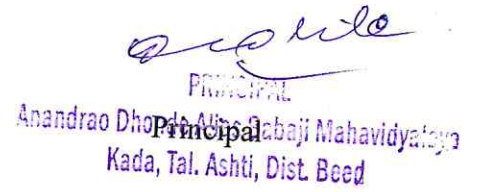 PRINCIPAL
Anandrao Dhonde Alias Babaji Mahavidyalaya
Principal
Kada, Tal. Ashti, Dist. Beed